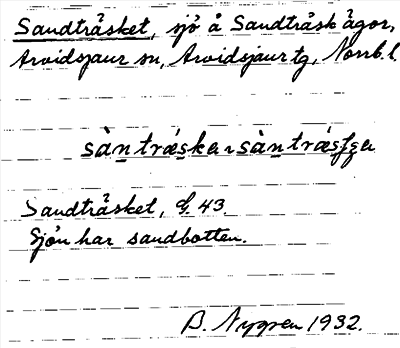 Sandträsket, sjö å Sandträsk ägor,
Arvidsjaur sn, Arvidsjaur tg, Norrb. l.
sàntrǽska ~ sàntrǽsʃʃa
Sandträsket, G. 43.
Sjön har sandbotten.
B. Nygren 1932.